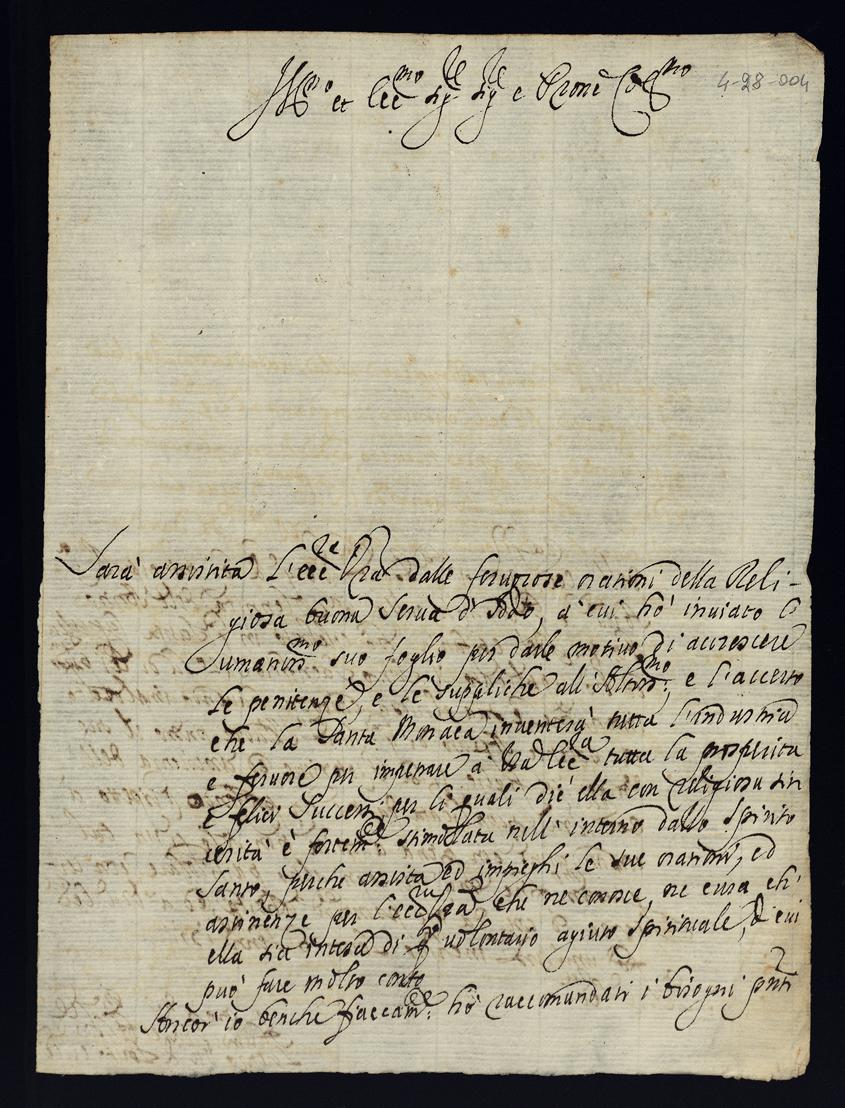 Ill.mo et Ecc.mo Sig.re Sig.re e Prone Col.mo
4-28-004
Sarà assistita l'ecc.za Vra dalle feruorose orationi della Reli-
giosa buona Serua d'Iddo, à cui hò inuiato l'
umaniss.mo suo foglio per darle motiuo di accrescere
le penitenze, e le suppliche all'Altiss.mo e l'accerto
che la Santa Monaca inuenterà tutta l'industria
e feruore per impetrare à Vra Ecc.za tutta la prosperità
e felici Successi per li quali dic'ella con religiosa sin
cerità è fortem.te stimolata nell'interno dallo Spirito
Santo, perche assista ed impieghi le sue orationi, ed
astinenze per l'ecc.za Vra, che ne conosce, ne cura ch'
ella sia intesa di q.to uolontario agiuto spirituale, di cui
può fare molto conto
Ancor'io benche fiaccam.te hò raccomandati i bisogni pnti